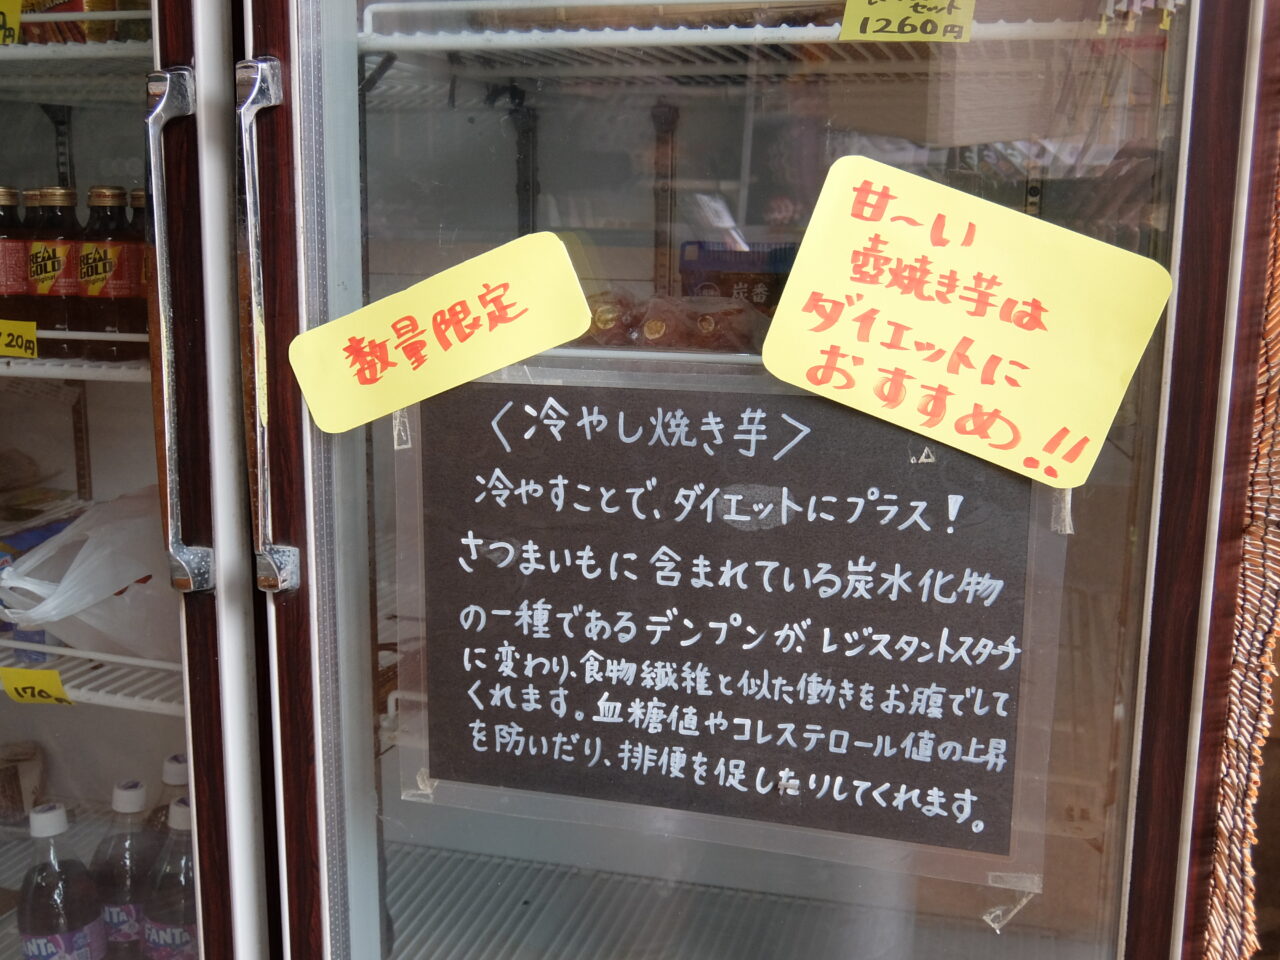 セット
1260円
甘〜い
壺焼き芋は
ダイエットに
おすすめ!!
数量限定
炭番
REAL
GOLD
original
REAL
GOLD
original
120円
170
〈冷やし焼き芋〉
冷やすことで、ダイエットにプラス!
さつまいもに含まれている炭水化物
の一種であるデンプンが、レジスタントスターチ
に変わり、食物繊維と似た働きをお腹でして
くれます。血糖値やコレステロール値の上昇
を防いだり、排便を促したりしてくれます。
FANTA
FANTA
FANTA